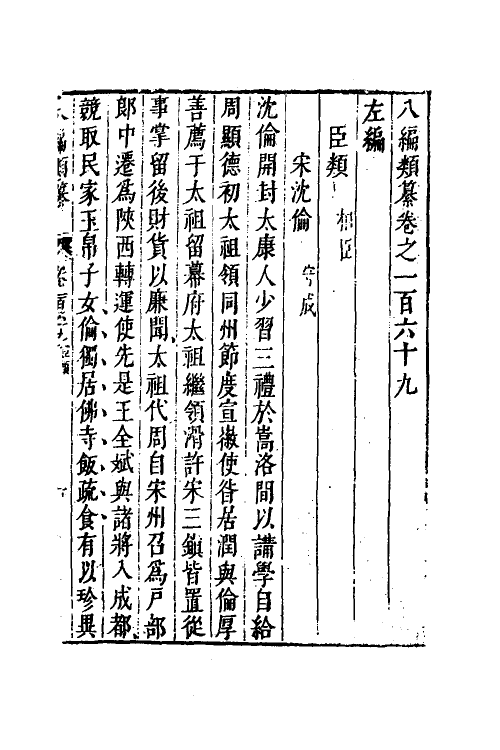 八編類纂卷之一百六十九
左編
臣類 相臣
宋沈倫 守成
沈倫開封太康人少習三禮於嵩洛間以講學自給
周顯德初太祖領同州節度宣徽使昝居潤與倫厚
善薦于太祖留幕府太祖繼領滑許宋三鎮皆置從
事掌留後財貨以廉聞太祖代周自宋州召爲戸部
郎中遷爲陝西轉運使先是王全斌與諸將入成都
競取民家玉帛子女倫獨居佛寺飯疏食有以珍異
八編類纂 卷百六十九 臣類